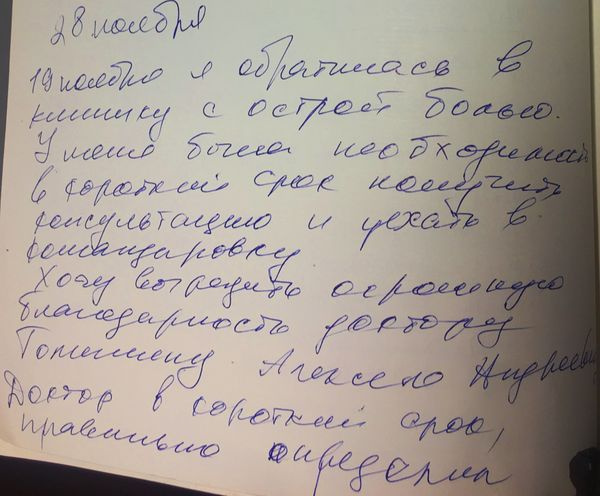 28 ноября
19 ноября я обратилась в
клинику с острой болью.
У меня была необходимость
в короткий срок получить
консультацию и уехать в
командировку
Хочу выразить огромную
благодарность доктору
Алексею Андреевичу
Доктор в короткий срок,
правильно определил